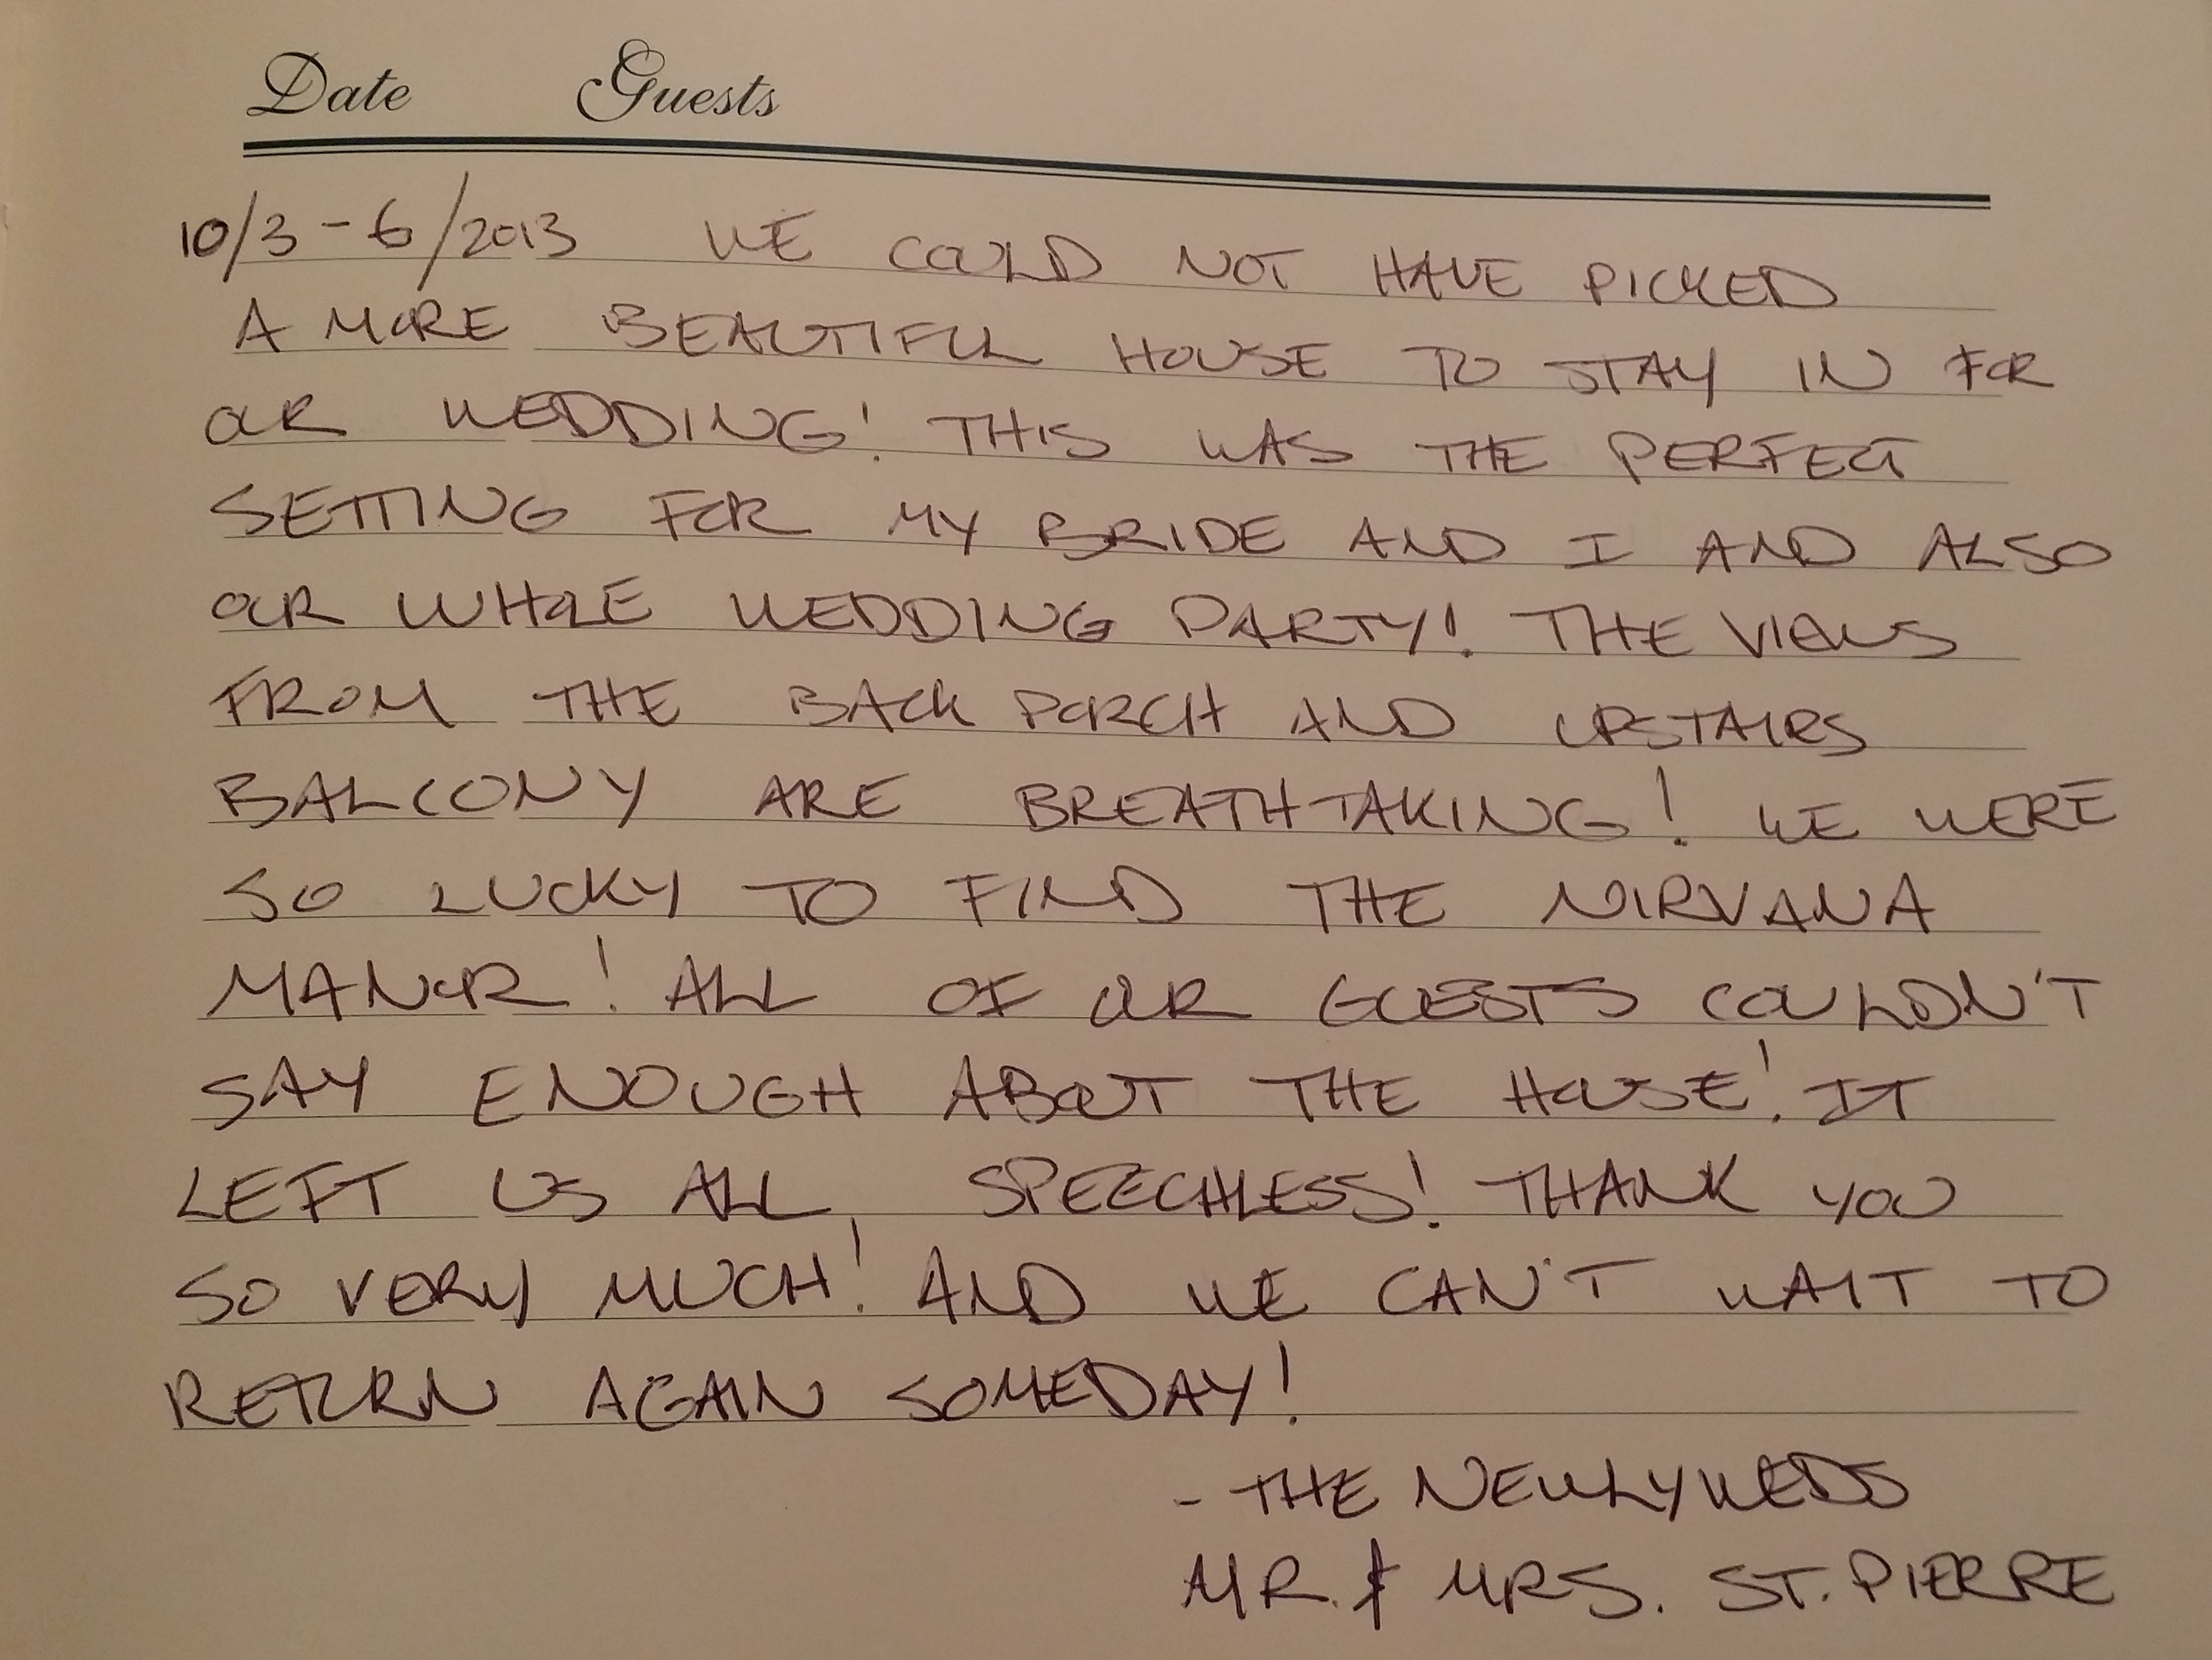 Date Guests
10/3-6/2013 WE COULD NOT HAVE PICKED
A MORE BEAUTIFUL HOUSE TO STAY IN FOR
OUR WEDDING! THIS WAS THE PERFECT
SETTING FOR MY BRIDE AND I AND ALSO
OUR WHOLE WEDDING PARTY! THE VIEWS
FROM THE BACK PORCH AND UPSTAIRS
BALCONY ARE BREATHTAKING! WE WERE
SO LUCKY TO FIND THE NIRVANA
MANOR! ALL OF OUR GUESTS COULDN'T
SAY ENOUGH ABOUT THE HOUSE! IT
LEFT US ALL SPEECHLESS! THANK YOU
SO VERY MUCH! AND WE CAN'T WAIT TO
RETURN AGAIN SOMEDAY!
- THE NEWLYWEDS
MR. & MRS. ST. PIERRE